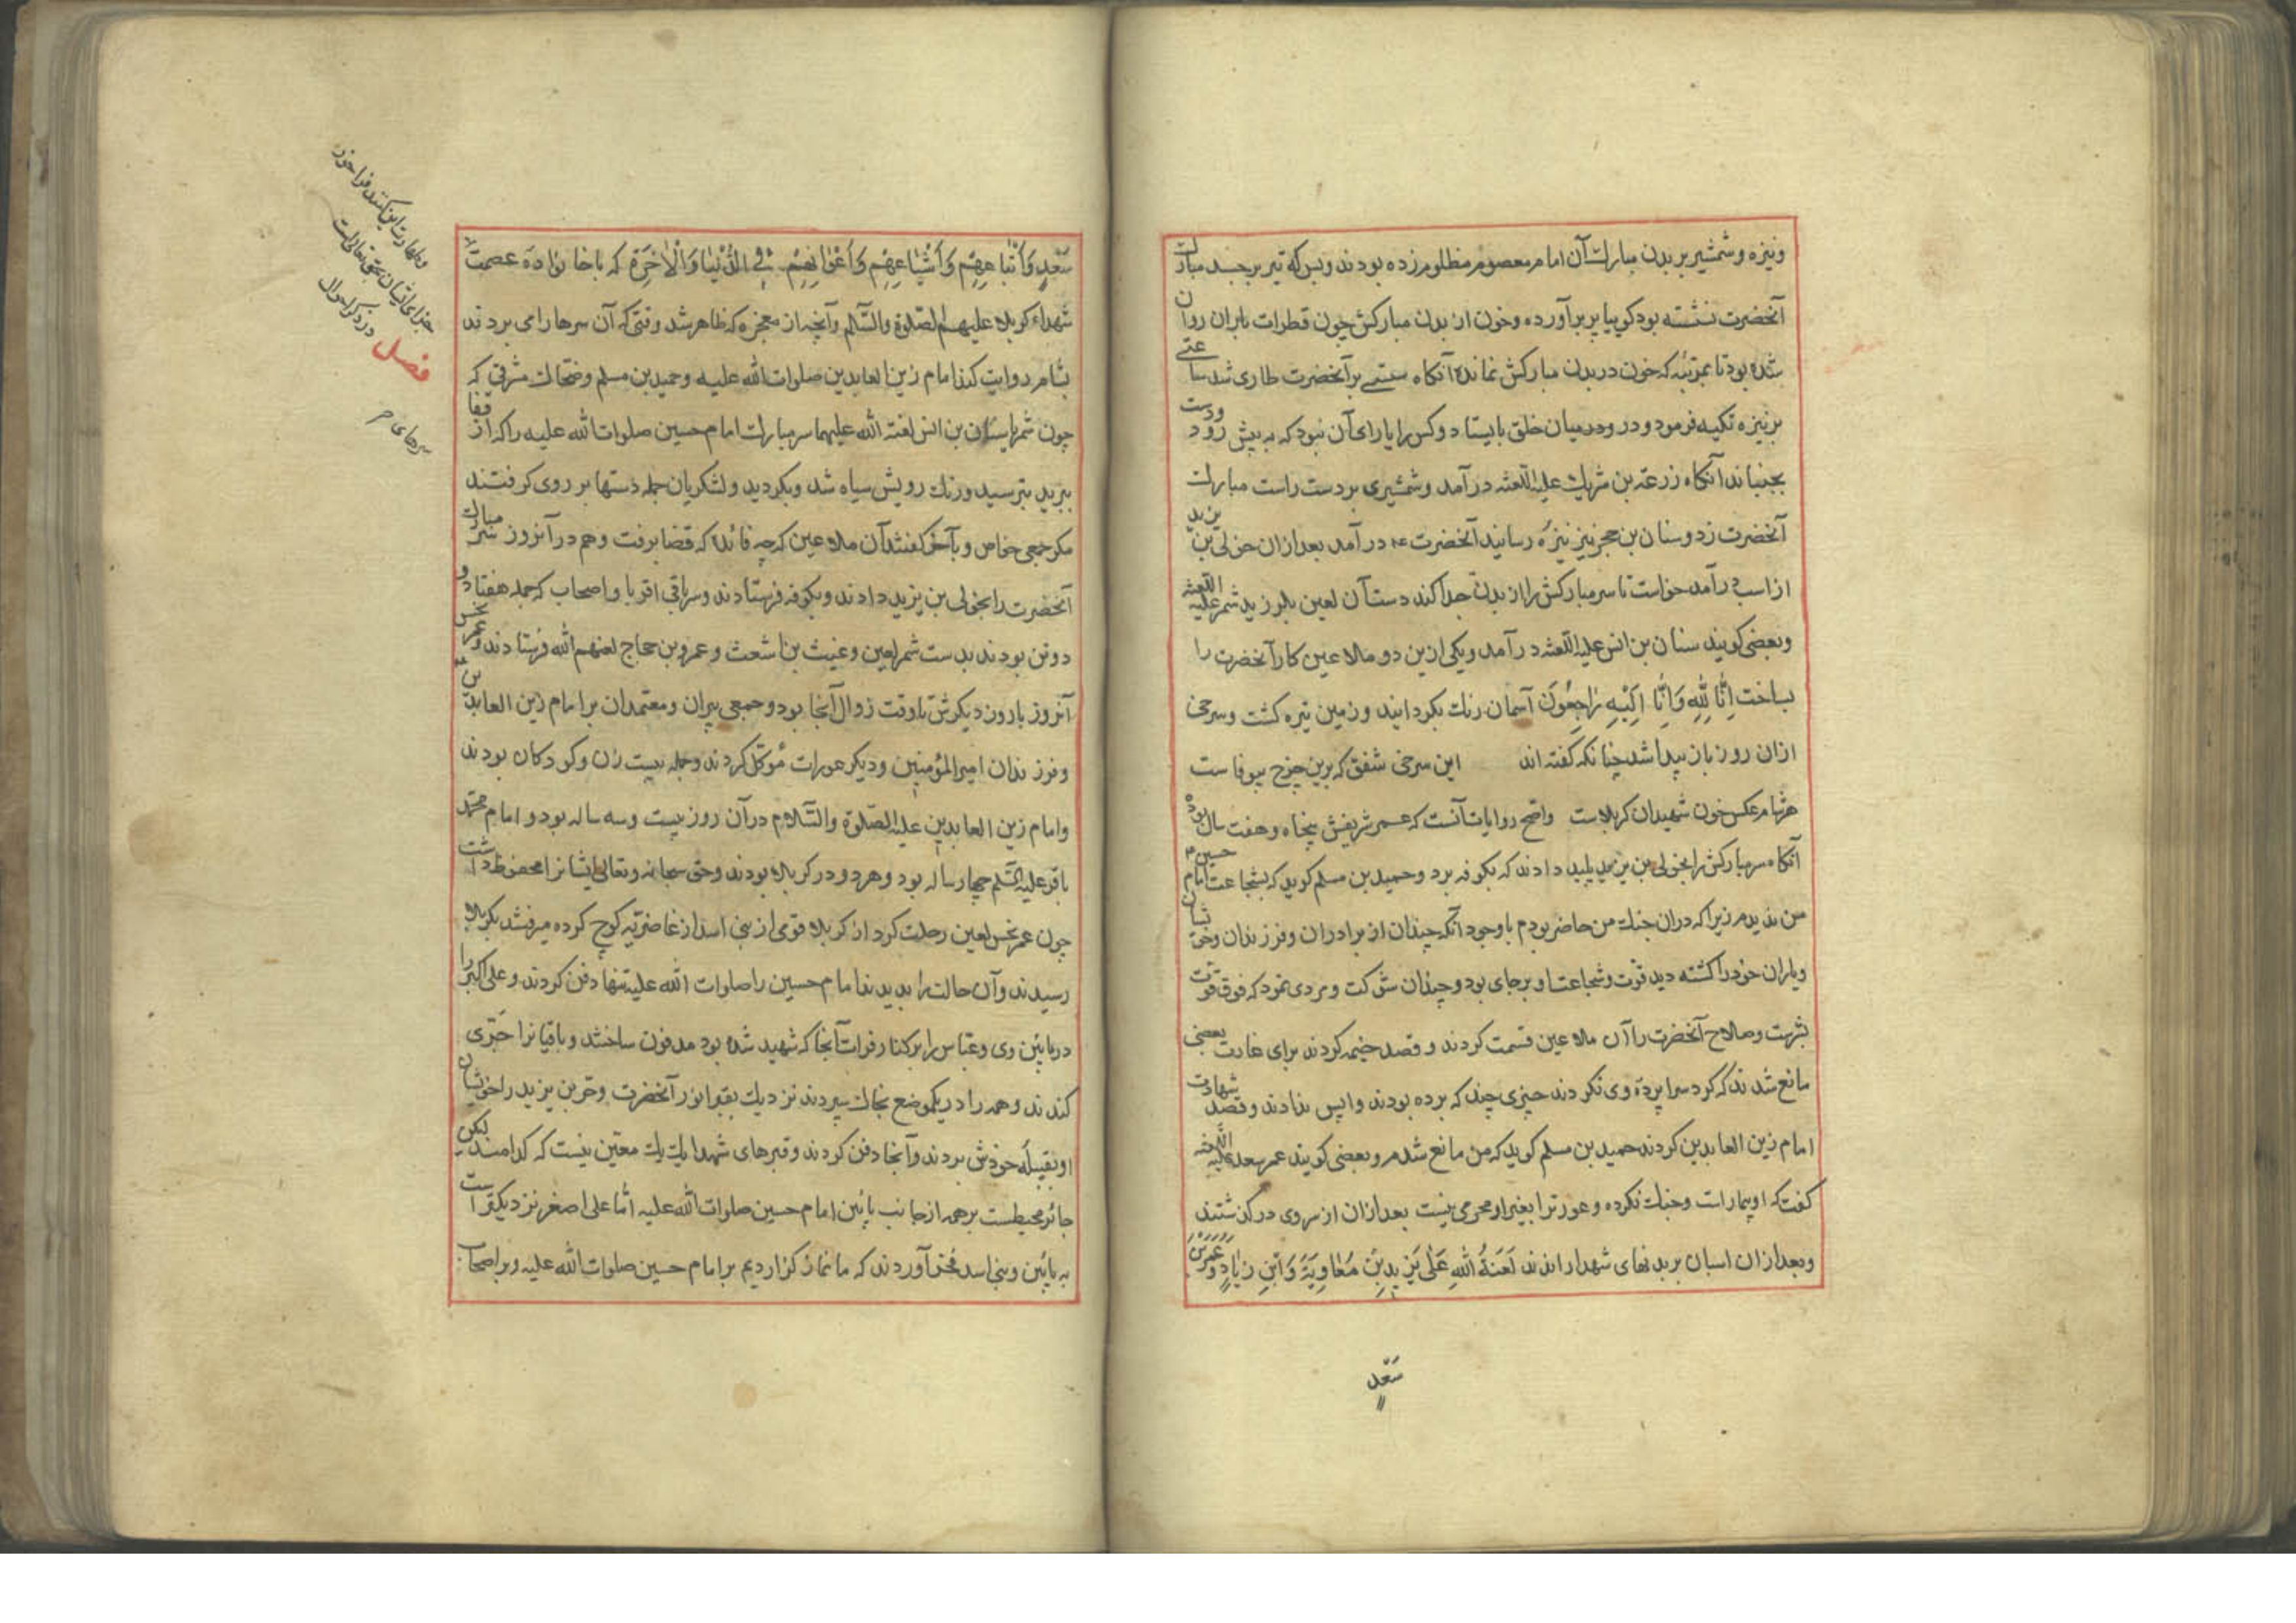 ونیزه وشمشیر بر بدن مبارک آن امام معصوم مظلوم زده بودند وبس که تیر بر جسد مبارک
آنحضرت نشسته بود کویا پر برآورده وخون از بدن مبارکش چون قطرات باران روان
شده بود تا بمرتبه که خون در بدن مبارکش نمانده آنکاه سستی بر آنحضرت طاری شد ساعتی
بر نیزه تکیه فرمود و در میان خلق بایستاد وکس را یارای آن نبود که به پیش رود ودست
بجنباند آنکاه زرعة بن شریک علیه اللعنه در آمد وشمشیری بر دست راست مبارک
آنحضرت زد وسنان بن حجر نیز نیزه رسانید آنحضرت در آمد بعد ازان خولی بن یزید
از اسب درآمد خواست تا سر مبارکش را از بدن جدا کند دست آن لعین بلرزید شمر علیه اللعنه
وبعضی کویند سنان بن انس علیه اللعنه درآمد ویکی ازین دو ملاعین کار آنحضرت را
بساخت اِنّا لِلّهِ وَاِنّا اِلَیْهِ رٰاجِعُونَ آسمان رنک بکردانید وزمین تیره کشت وسرخی
ازان روز باز پیدا شد چنانکه کفته اند این سرخی شفق که برین چرخ بیوفاست
هر شام عکس خون شهیدان کربلاست واصح روایات آنست که عمر شریفش پنجاه وهفت سال بوده
آنکاه سر مبارکش را بخولی بن یزید پلید دادند که بکوفه برد وحمید بن مسلم کوید که بشجاعت امام حسین
من ندیدم زیرا که دران جنک من حاضر بودم با وجود آنکه چندان از برادران وفرزندان وخویشان
ویاران خود را کشته دید قوت وشجاعت او بر جای بود وچندان شوکت ومردی نمود که فوق قوت
بشریت وصلاح آنحضرت را آن ملاعین قسمت کردند وقصد خیمه کردند برای غارت بعضی
مانع شدند که کرد سرا پردهٔ وی نکردند چیزی چند که برده بودند واپس ندادند وقصد شهادت
امام زین العابدین کردند حمید بن مسلم کوید که من مانع شدم وبعضی کویند عمر سعد علیه اللعنه
کفت که او بیمار است وجنک نکرده وعورترا بغیر او محرمی نیست بعد ازان از سر وی در کذشتند
وبعد ازان اسبان بر بدنهای شهدا راندند لَعَنَهُ اللّهِ عَلٰی یَزِیدِ بْنِ مُعٰاوِیَةَ وَابْنِ زِیٰادٍ وَعُمَرِ بْنِ
سَعْدٍ
سَعْدٍ وَاَتْبٰاعِهِمْ وَاَشْیٰاعِهِمْ وَاَعْوٰانِهِمْ فِی الدُّنْیٰا وَالْاٰخِرَةِ که با خانوادهٔ عصمت
شهداء کربلا علیهم الصلوة والسلام وآنچه از معجزه که ظاهر شد وقتی که آن سرها را می بردند
بشام روایت کند امام زین العابدین صلوات الله علیه وحمید بن مسلم وضحاک مشرقی که
چون شمر یا سنان بن انس لعنة الله علیهما سر مبارک امام حسین صلوات الله علیه را که از قفا
ببرید بترسید ورنک رویش سیاه شد وبکردید ولشکریان جمله دستها بر روی کرفتند
مکر جمعی خواص وبآخر کفتند آن ملاعین که چه فائده که قضا برفت وهم در آنروز سر مبارک
آنحضرت را بخولی بن یزید دادند وبکوفه فرستادند وسر باقی اقربا واصحاب که جمله هفتاد و
دو تن بودند بدست شمر لعین وعنیث بن اشعث وعمرو بن حجاج لعنهم الله فرستادند وعمر نحس
آنروز با روز دیکرش تا وقت زوال آنجا بود وجمعی پیران ومعتمدان بر امام زین العابدین
وفرزندان امیر المؤمنین ودیکر عورات مُوکّل کردند وجمله بیست زن وکودکان بودند
وامام زین العابدین علیه الصلوة والسّلام در آن روز بیست وسه ساله بود و امام محمّد
باقر علیه السّلم چهار ساله بود وهر دو در کربلا بودند وحق سبحانه وتعالی ایشانرا محفوظ داشت
چون عمر نحس لعین رحلت کرد از کربلا قومی از بنی اسد از غاضریّه کوچ کرده میرفتند بکربلا
رسیدند وآن حالت را بدیدند امام حسین را صلوات الله علیه تنها دفن کردند وعلی اکبر را
در پائین وی وعبّاس را بر کنار فرات آنجا که شهید شده بود مدفون ساختند وباقیانرا حفری
کندند وهمه را در یکموضع بخاک سپردند نزدیک بقبر انور آنحضرت وحرّ بن یزید را خویشان
او بقبیلهٔ خودش بردند وآنجا دفن کردند وقبرهای شهدا یک یک معیّن نیست که کدامند لیکن
جائر محیطست بر همه از جانب پائین امام حسین صلوات الله علیه امّا علی اصغر نزدیکتر است
به پائین وبنی اسد فخر آوردند که ما نماز کزاردیم بر امام حسین صلوات الله علیه وبر اصحاب
وطهارت این کنند فردا
جزای ایشان بحق تعالی است
فصل در ذکر احوال
سرهای